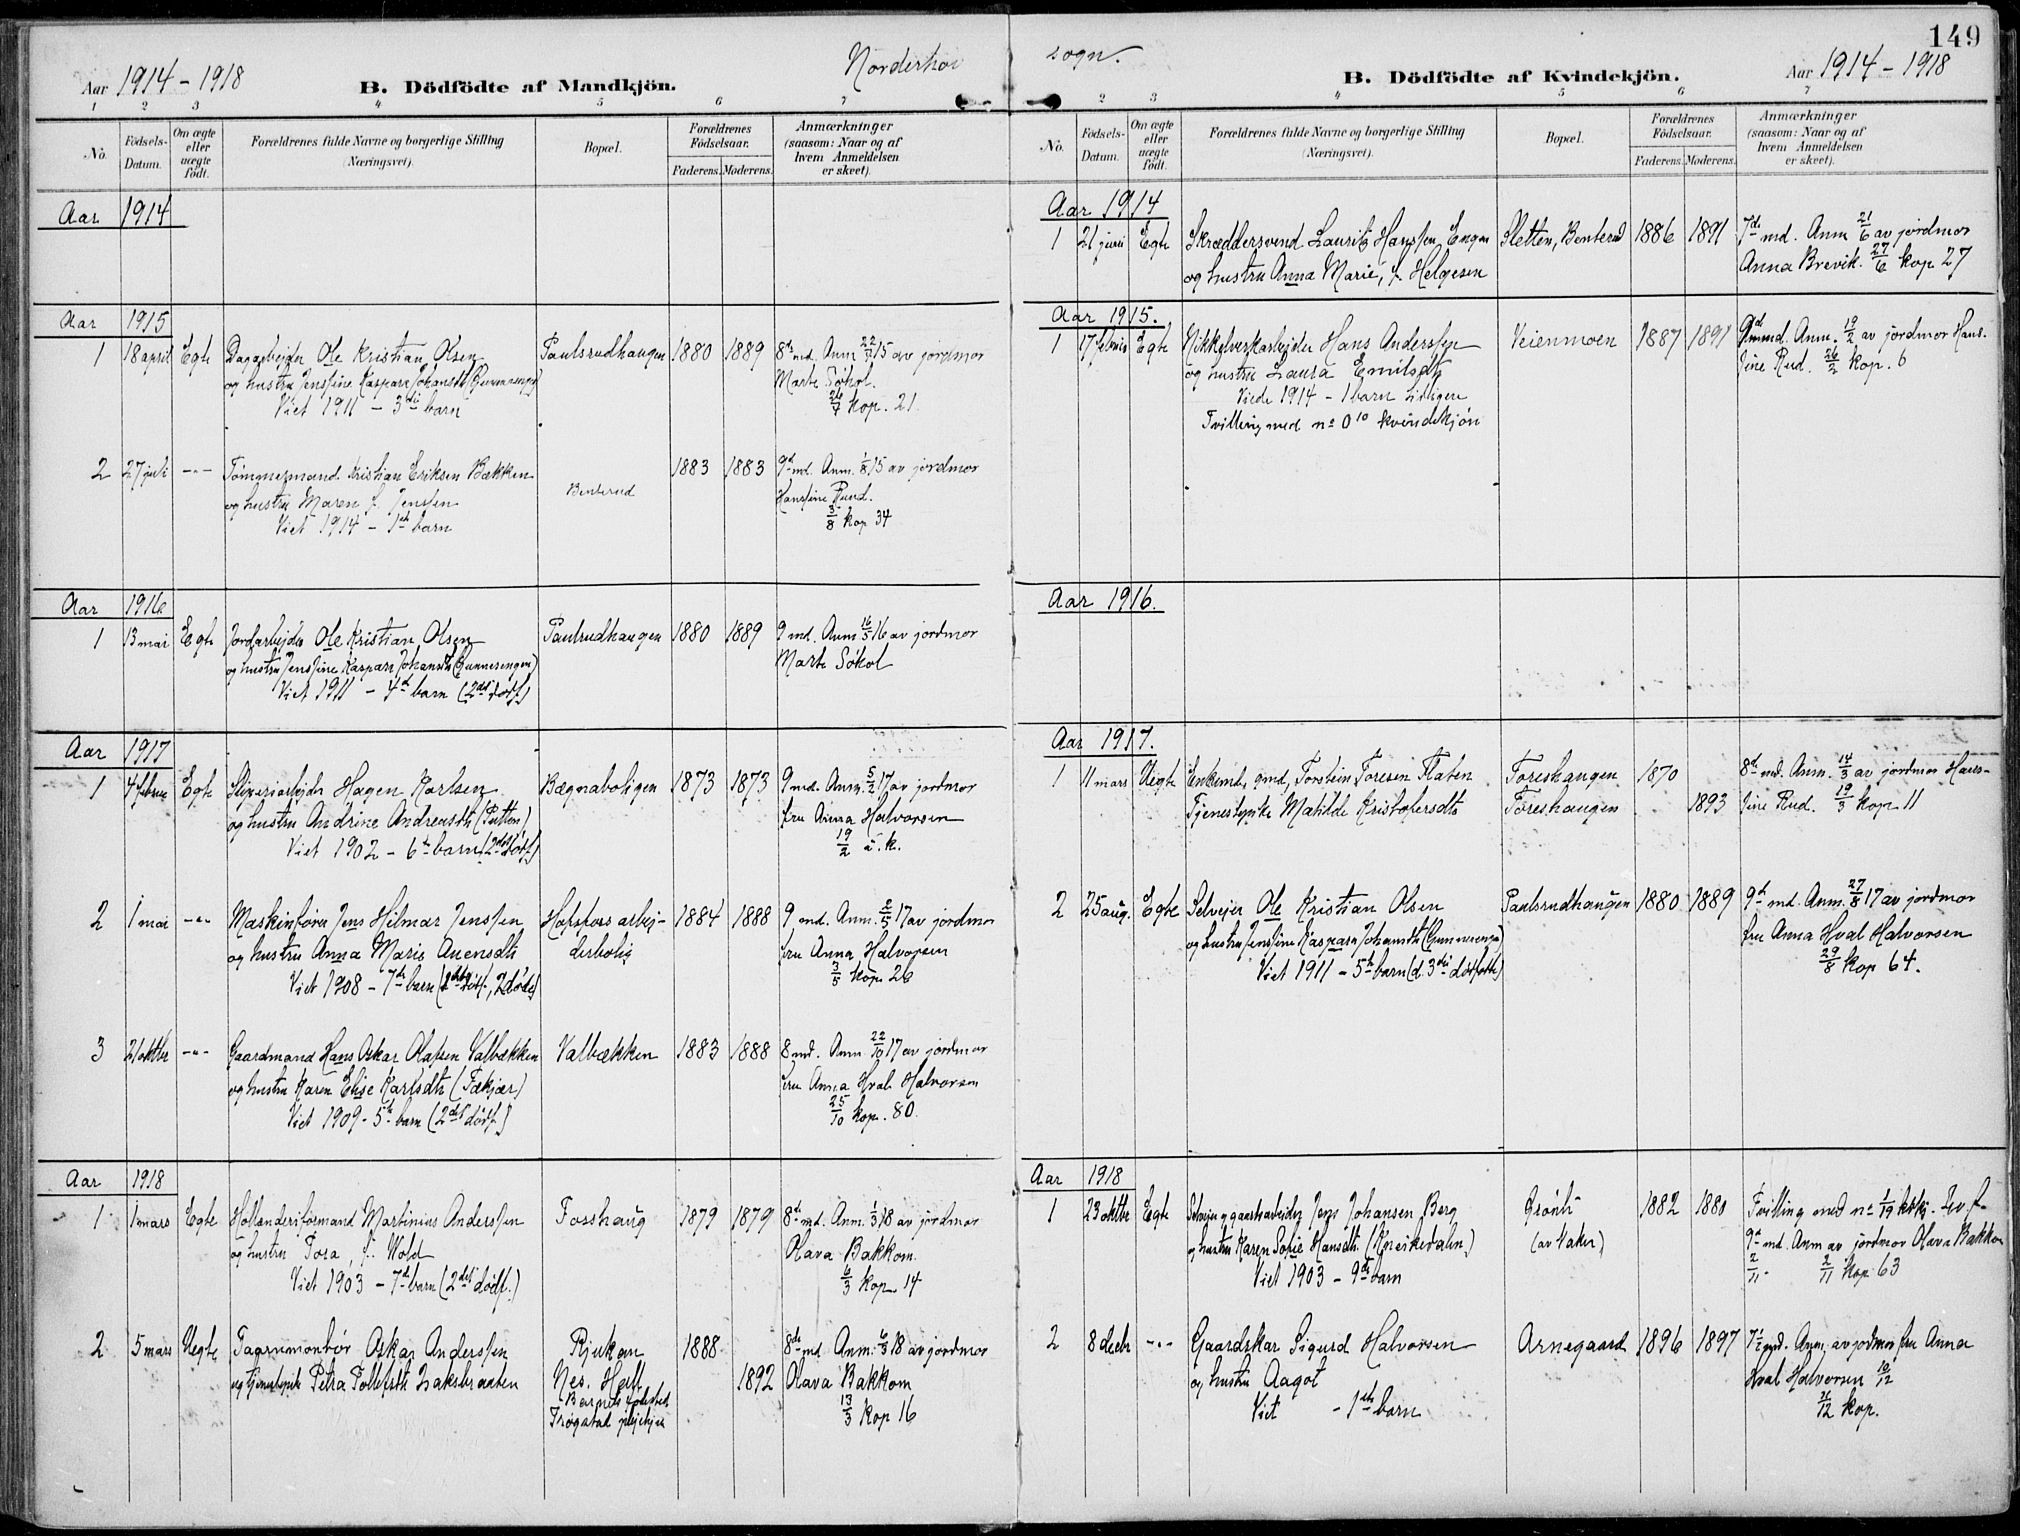 149
Norderhov sogn.
Aar 1914 - 1918
B. Dödfödte af Mandkjön.
1 2 3 4 5 6 7
No.
Födsels-Datum.
Om ægte eller uægte født.
Forældrenes fulde Navne og borgerlige Stilling (Næringsvei).
Bopæl.
Forældrenes Födselsaar.
Faderens. Moderens.
Anmærkninger (saasom: Naar og af hvem Anmeldelsen er skeet).
Aar 1914
Aar 1915
1 18 april Egte Dagarbejder Ole Kristian Olsen Paulsrudhaugen 1880 1889 8de md. Anm 22/7 15 av jordmor
og hustru Jensine Kaspara Johansdtr (Gunnerengen) Marte Søhol.
Viet 1911 - 3die barn 26/7 kop. 21.
2 27 juli -"- Tømmermand Kristian Eriksen Bækken 1883 1883 9d md. Anm. 1/8 15 av jordmor
og hustru Maren f. Jenssen Benterud Hansine Ruud.
Viet 1914 - 1ste barn 3/8 kop 34
Aar 1916
1 13 mai Egte Jordarbejder Ole Kristian Olsen Paulrudhaugen 1880 1889 9 md. Anm 16/5 16 av jordmor
og hustru Jenssine Kaspara Johansdtr (Gunnerengen) Marte Søhol
Viet 1911 - 4d barn (2det dødf.)
Aar 1917
1 4 febru Egte Sliperiarbejder Hagen Karlsen Bægnaboligen 1873 1873 9 md. Anm. 5/2 17 av jordmor
og hustru Andrine Andreasdtr (Putten) fru Anna Halvorsen
Viet 1902 - 6te barn (2det dødf.) 19/2 a. k.
2 1 mai -"- Maskinfører Jens Hilmar Jenssen Hofsfos arbej- 1884 1888 9 md. Anm. 2/5 17 av jordmor
og hustru Anna Marie Auensdtr derbolig fru Anna Halvorsen
Viet 1908 - 7de barn (2det dødf., 2 døde) 3/5 kop. 26
3 21 oktbr -"- Gaardmand Hans Oskar Olafsen Valbækken Valbækken 1883 1888 8 md. Anm. 22/10 17 av jordmor
og hustru Karen Elise Karlsdtr (Fækjær) fru Anna Hval Halvorsen
Viet 1909 - 5te barn (2det dødf.) 25/10 kop. 80.
Aar 1918
1 1 mars Egte Hollenderiformand Martinius Anderssen Fosshaug 1879 1879 8de md. Anm. 1/3 18 av jordmor
og hustru Tora, f. Wold Olava Bakkom.
Viet 1903 - 7de barn (2det dødf.) 6/3 kop 14
2 5 mars Uegte Taarnmontør Oskar Anderssen Rjukan 1888 8de md. Anm. 6/3 18 av jordmor
og tjenestepike Petra Tollefsdtr Laksbraaten Nes. Hall. 1892 Olava Bakkom
Barnets fødested 13/3 kop 16
Trøgstad plejehjem
B. Dödfödte af Kvindekjön.
Aar 1914 - 1918
2 3 4 5 6 7
No.
Födsels-Datum.
Om ægte eller uægte født.
Forældrenes fulde Navne og borgerlige Stilling (Næringsvei).
Bopæl.
Forældrenes Födselsaar.
Faderens. Moderens.
Anmærkninger (saasom: Naar og af hvem Anmeldelsen er skeet).
Aar 1914
1 21 juni Egte Skræddersvend Lauritz Hanssen Engen Sletten, Benterud 1886 1891 7de md. Anm 21/6 av jordmor
og hustru Anna Marie, f. Helgesen Anna Brevik. 27/6 kop 27
Aar 1915.
1 17 febru Egte Nikkelverkarbejder Hans Anderssen Veienmoen 1887 1891 9d md. Anm. 19/2 av jordmor Hans-
og hustru Laura Emilsdtr sine Rud. 26/2 kop. 6
Viede 1914 - 1 barn tidligere
Tvilling med no 010 kvindekjøn
Aar 1916.
Aar 1917.
1 11 mars Uegte Enkemd, gmd, Torstein Toresen Flaten Toreshaugen 1870 8de md. Anm. 14/3 av jordmor Hans-
Tjenestepike Matilde Kristofersdtr Toreshaugen 1893 sine Rud. 19/3 kop 11
2 25 aug. Egte Selvejer Ole Kristian Olsen Paulsrudhaugen 1880 1889 9d md. Anm. 27/8 17 av jordmor
og hustru Jenssine Kaspara Johansdtr (Gunnerengen) fru Anna Hval Halvorsen
Viet 1911 - 5te barn (d. 3die dødfødte) 29/8 kop 64.
Aar 1918
1 23 oktbr Egte Selvejer og gaardsarbejder Jens Johansen Berg Grønli 1882 1880 Tvilling med no 1/19 kvkj. lev. f.
og hustru Karen Sofie Hansdtr. (Kneikedalen) (av Vaker) 9d md. Anm av jordmor Olava Bakkom
Viet 1903 - 9de barn 2/11. 2/11 kop 63
2 8 decbr -"- Gaardskar Sigurd Halvorsen Arnegaard 1896 1897 7½ md. Anm. av jordmor fru Anna
og hustru Aagot Hval Halvorsen 10/12
Viet - 1ste barn /12 kop.